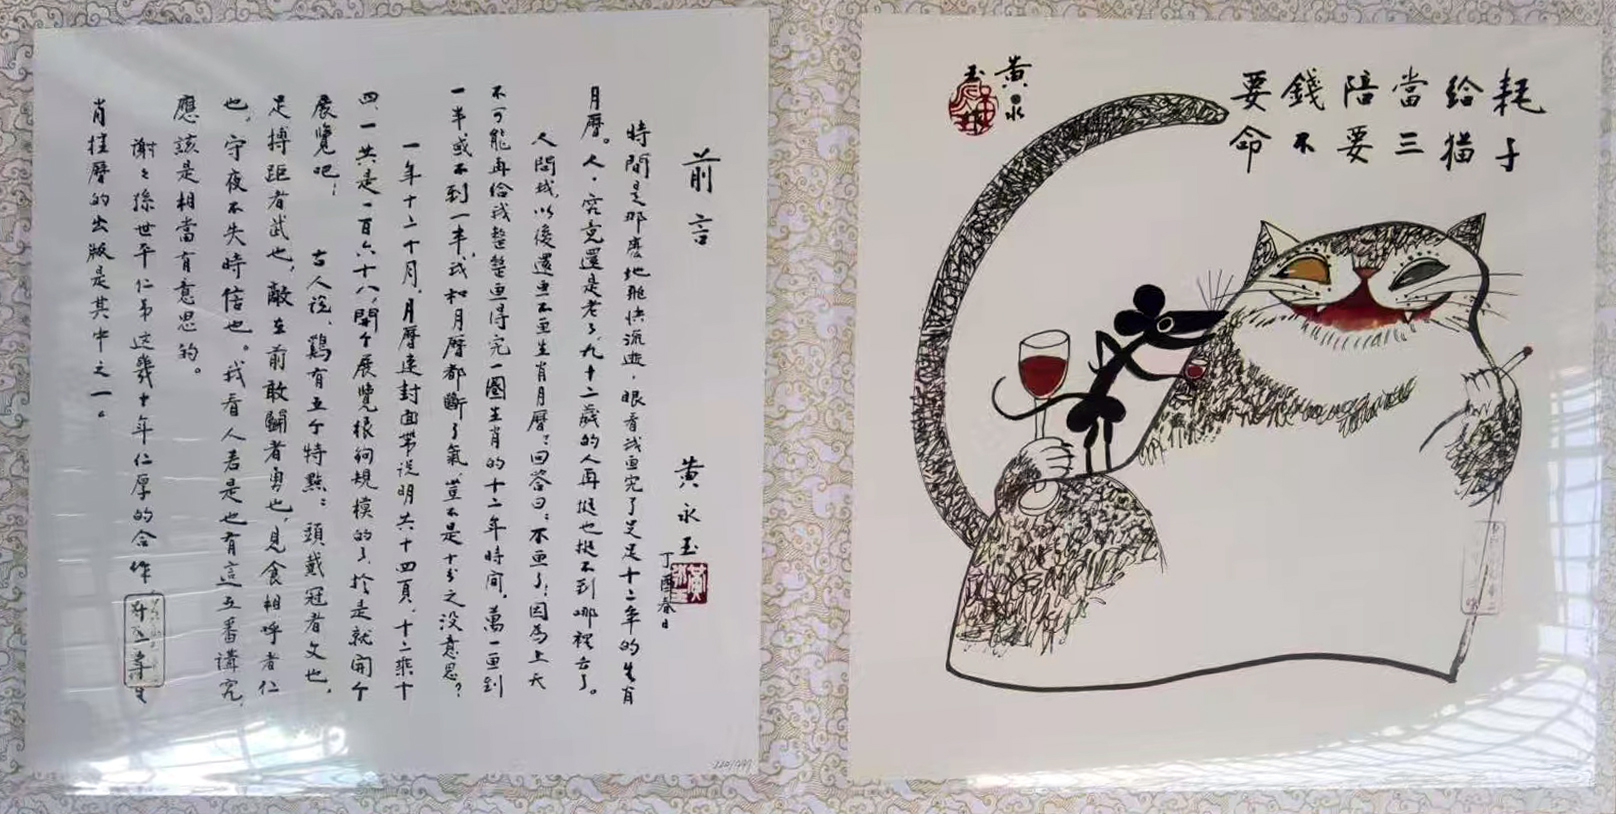 前言
黄永玉
丁酉春日
時間是那麽地飛快流逝，眼看我画完了足足十二年的生肖
月曆。人，究竟還是老了，九十二歲的人再挺也挺不到哪裡去了。
人問我，以後還画不画生肖月曆？回答曰：不画了，因為上天
不可能再給我整整画得完一圈生肖的十二年時间，萬一画到
一半或不到一半，我和月曆都斷了氣，豈不是十分之没意思？
一年十二个月，月曆連封面带说明共十四頁，十二乘十
四，一共是一百六十八，開个展覽様夠規模的了，於是就開个
展覽吧！
古人說，鷄有五个特點：頭戴冠者文也，
足搏距者武也，敵在前敢鬭者勇也，見食相呼者仁
也，守夜不失時信也。我看人若是也有這五番講究，
應該是相當有意思的。
謝々孫世平仁弟這幾十年仁厚的合作，
肖挂曆的出版是其中之一。
耗子
給猫
當三
陪要
錢不
要命
黄永
玉